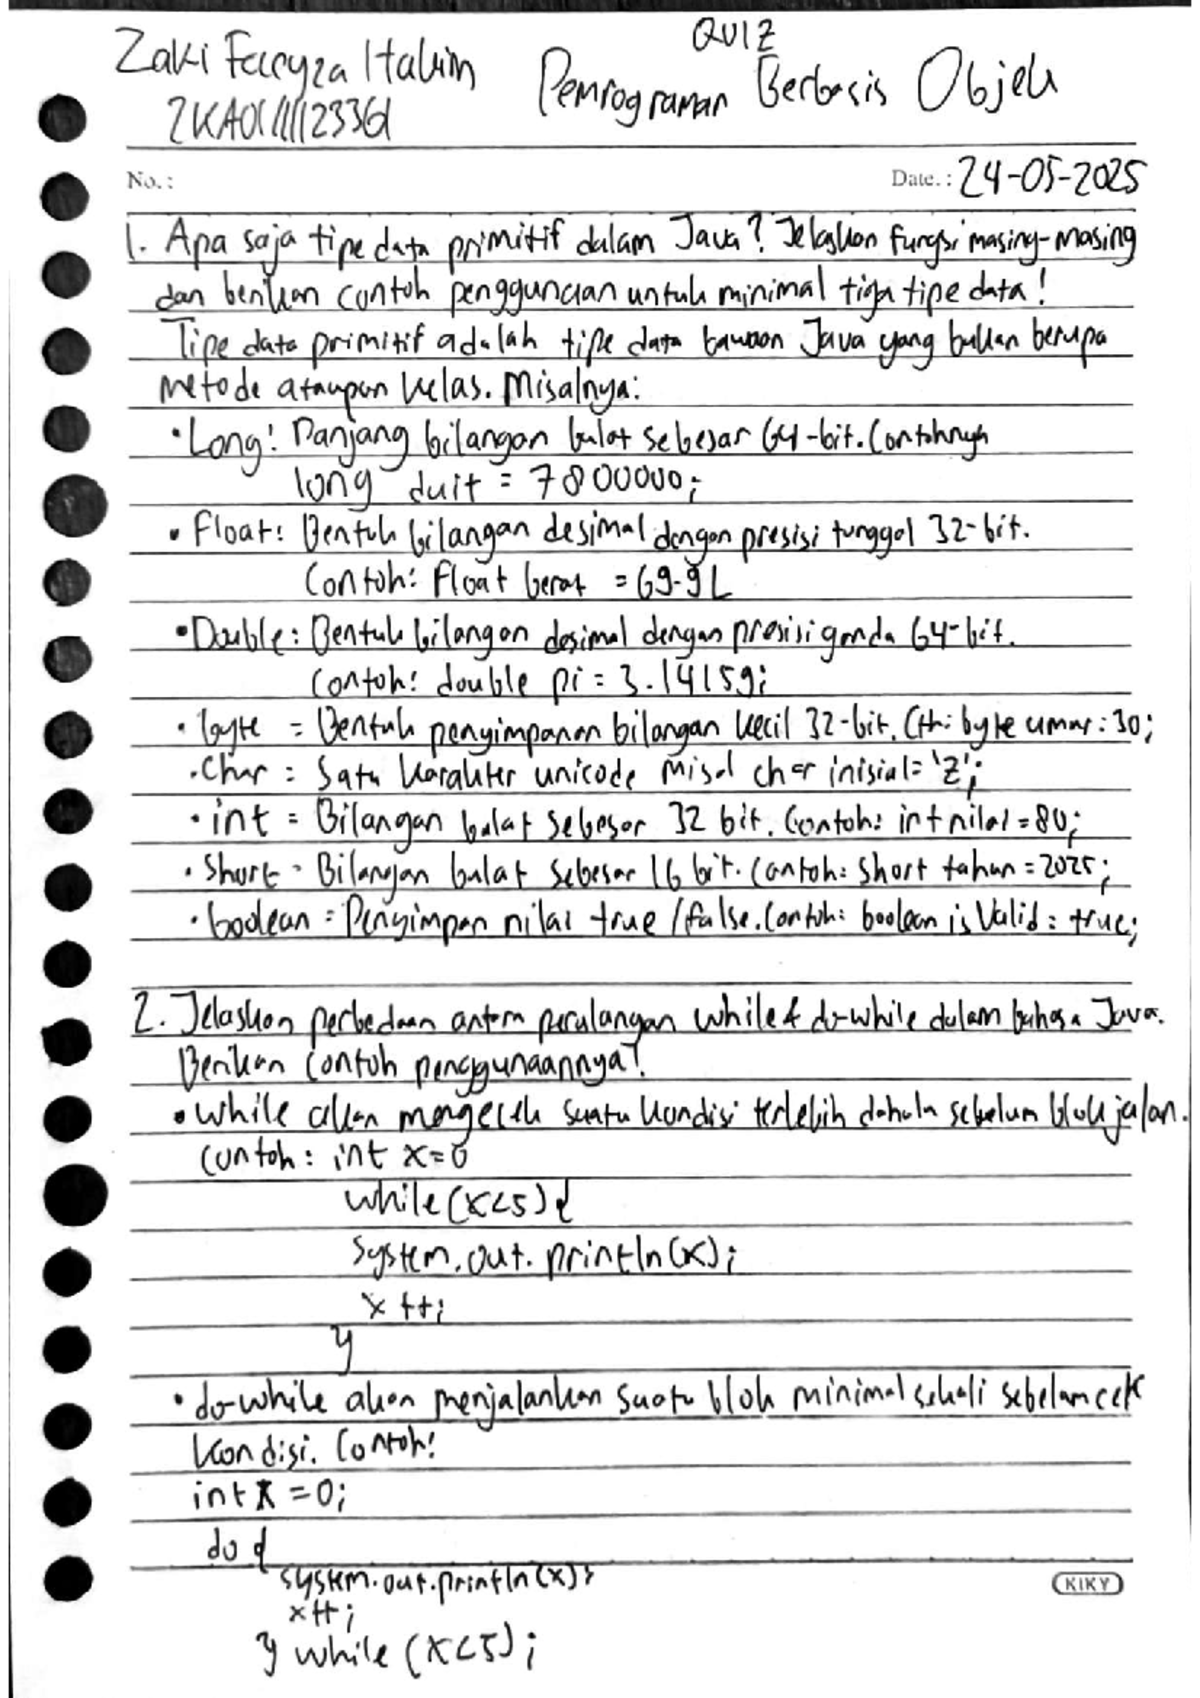 QUIZ
Zaki Hakim Pemrograman Berbasis Objek
No.: Date.: 24-05-2025
1. Apa saja tipe data primitif dalam Java? Jelaskan fungsi masing-masing
dan berikan contoh penggunaan untuk minimal tiga tipe data!
Tipe data primitif adalah tipe data bawaan Java yang bukan berupa
metode ataupun kelas. Misalnya:
• Long: Panjang bilangan bulat sebesar 64-bit. Contohnya
long duit = 7800000;
• Float: Bentuk bilangan desimal dengan presisi tunggal 32-bit.
Contoh: Float berat = 69.9L
• Double: Bentuk bilangan desimal dengan presisi ganda 64-bit.
Contoh: double pi = 3.14159;
• byte = Bentuk penyimpanan bilangan kecil 32-bit. Cth: byte umur: 30;
• Char = Satu karakter unicode misal char inisial = 'Z';
• int = Bilangan bulat sebesar 32 bit. Contoh: int nilai = 80;
• Short = Bilangan bulat sebesar 16 bit. Contoh: Short tahun = 2025;
• boolean = Penyimpan nilai true/false. Contoh: boolean isValid = true;
2. Jelaskan perbedaan antara perulangan while & do-while dalam bahasa Java.
Berikan contoh penggunaannya!
• while akan mengecek suatu kondisi terlebih dahulu sebelum blok jalan.
contoh: int x=0
while(x<5){
System.out.println(x);
x++;
}
• do-while akan menjalankan suatu blok minimal sekali sebelum cek
kondisi. Contoh:
int x = 0;
do {
System.out.println(x);
x++;
} while (x<5);
KIKY